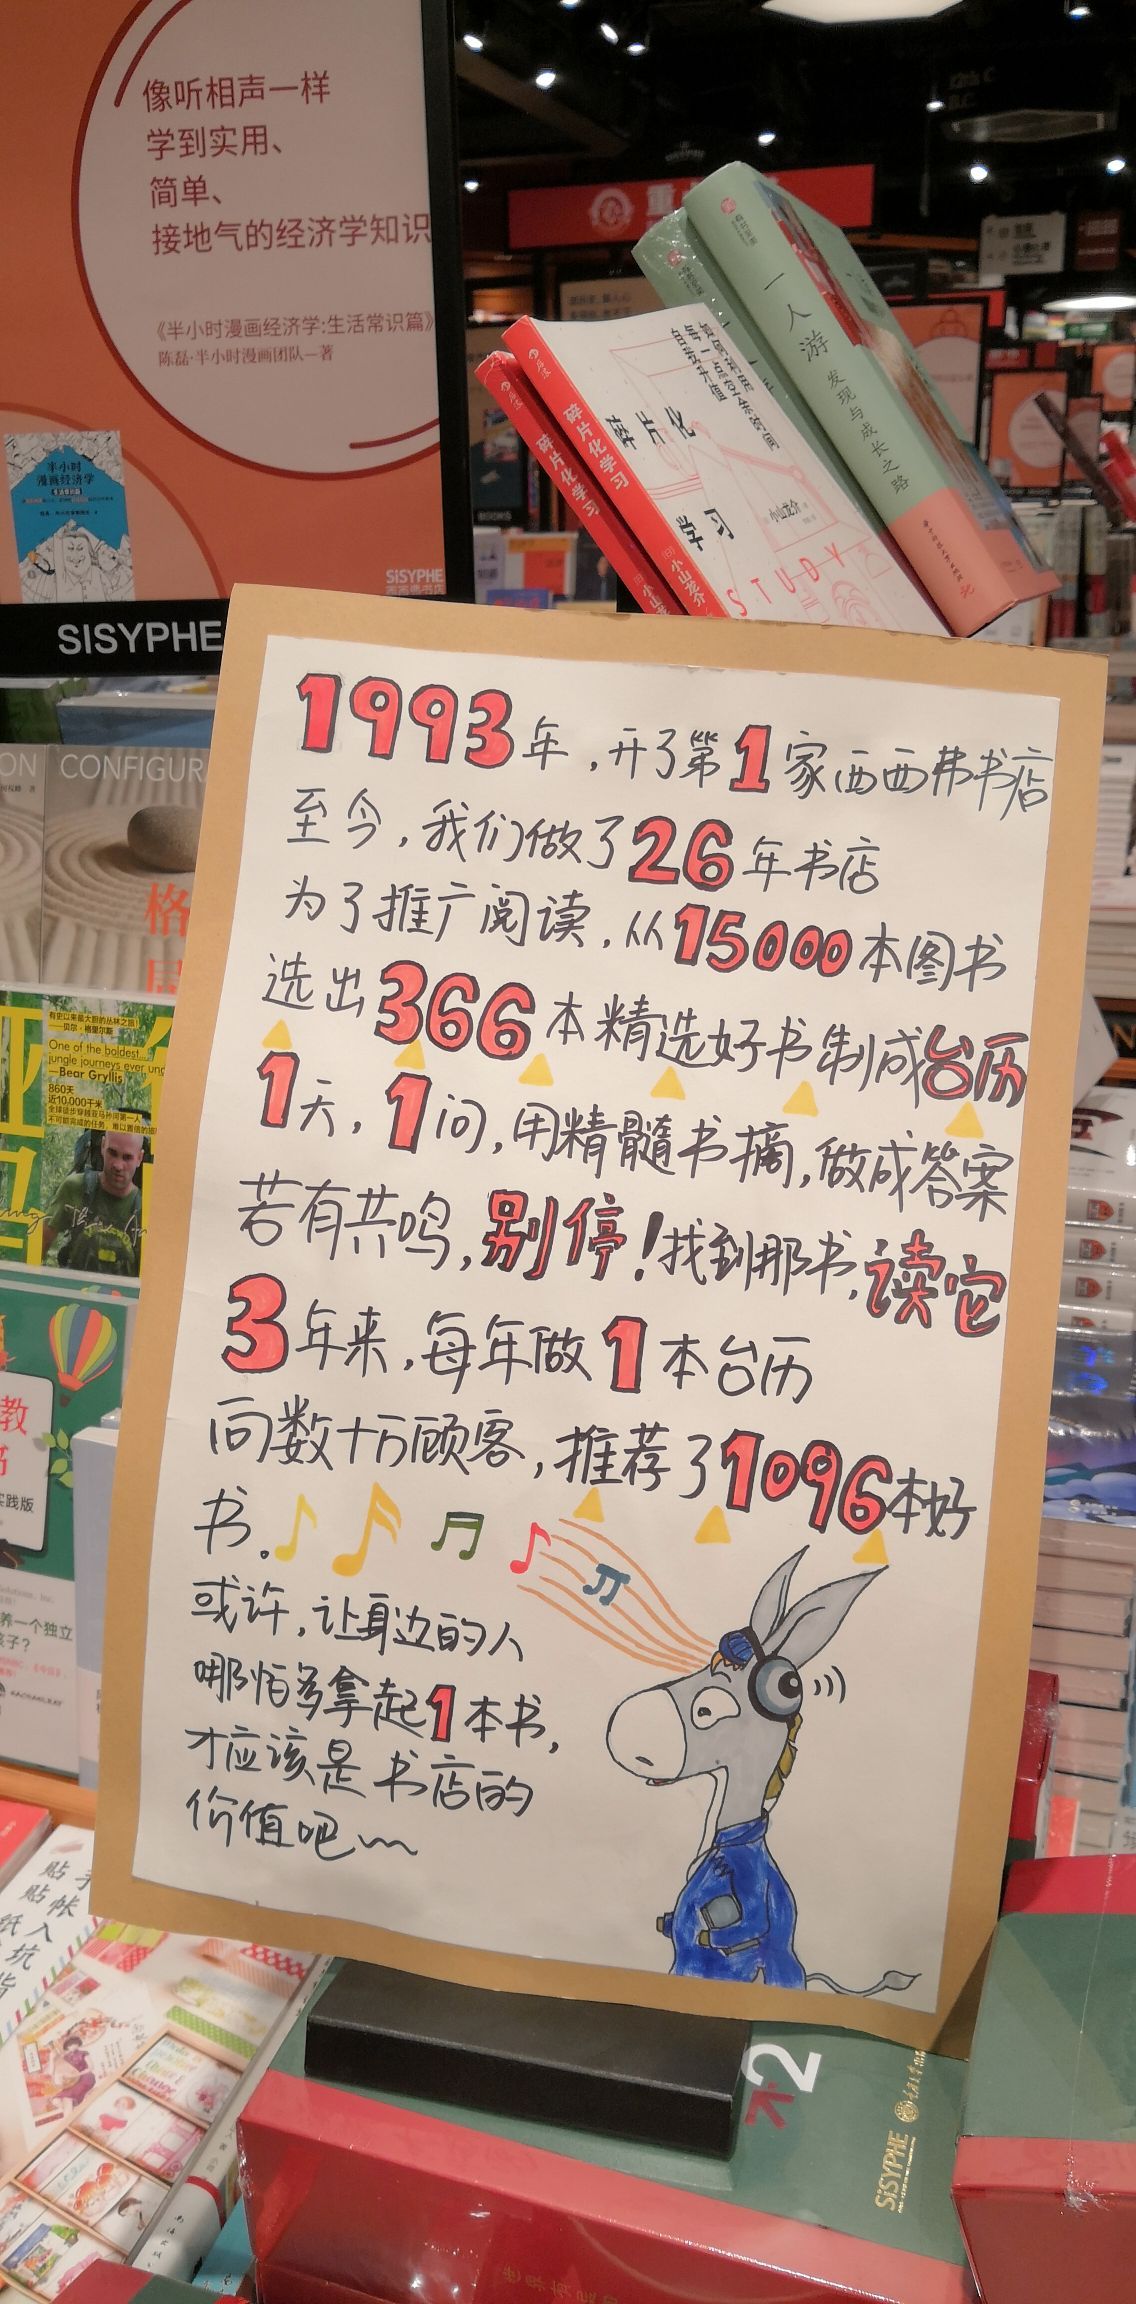 像听相声一样
学到实用、
简单、
接地气的经济学知识
《半小时漫画经济学:生活常识篇》
陈磊·半小时漫画团队—著
半小时
漫画经济学
SISYPHE
西西弗书店
SISYPHE
一人游
发现与成长之路
碎片化学习
碎片化学习
小山龙介
碎片化
学习
小山龙介
STUDY
1993年,开了第1家西西弗书店
至今,我们做了26年书店
为了推广阅读,从15000本图书
选出366本精选好书制成台历
1天,1问,用精髓书摘,做成答案
若有共鸣,别停!找到那书,读它
3年来,每年做1本台历
向数十万顾客,推荐了1096本好
书。
或许,让身边的人
哪怕多拿起1本书,
才应该是书店的
价值吧~~
CONFIGUR
格
局
有史以来最大胆的丛林之旅!
——贝尔·格里尔斯
One of the boldest...
jungle journeys ever
—Bear Gryllis
860天
近10,000千米
全球徒步穿越亚马孙河第一人
教
书
实践版
养一个独立
孩子?
手帐入坑
贴贴纸
2
SISYPHE